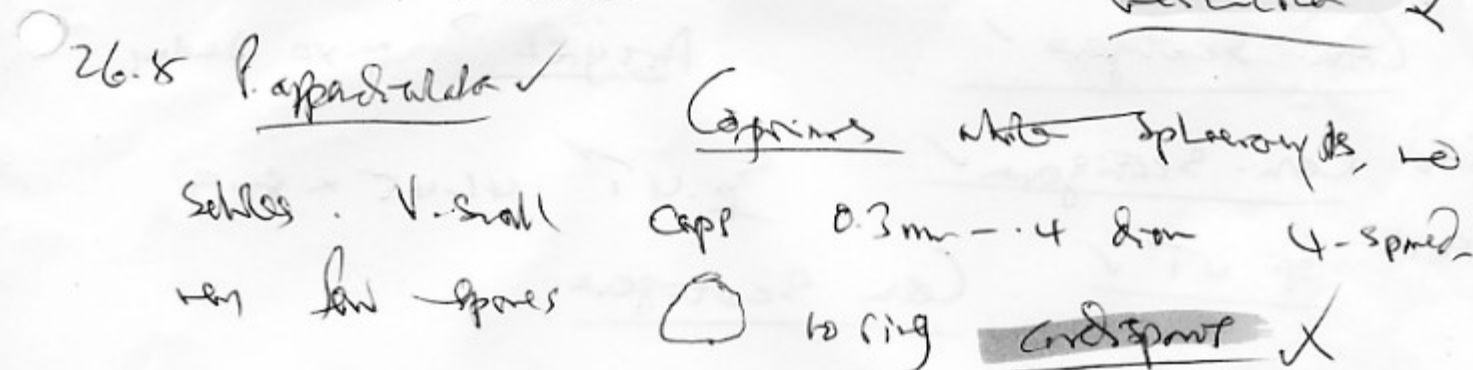 26.8 P. appendiculata ✓ Coprinus white sphaerocysts, no
setules. V. small caps 0.3mm - .4 diam 4-spored,
very few spores no ring cordisporus X